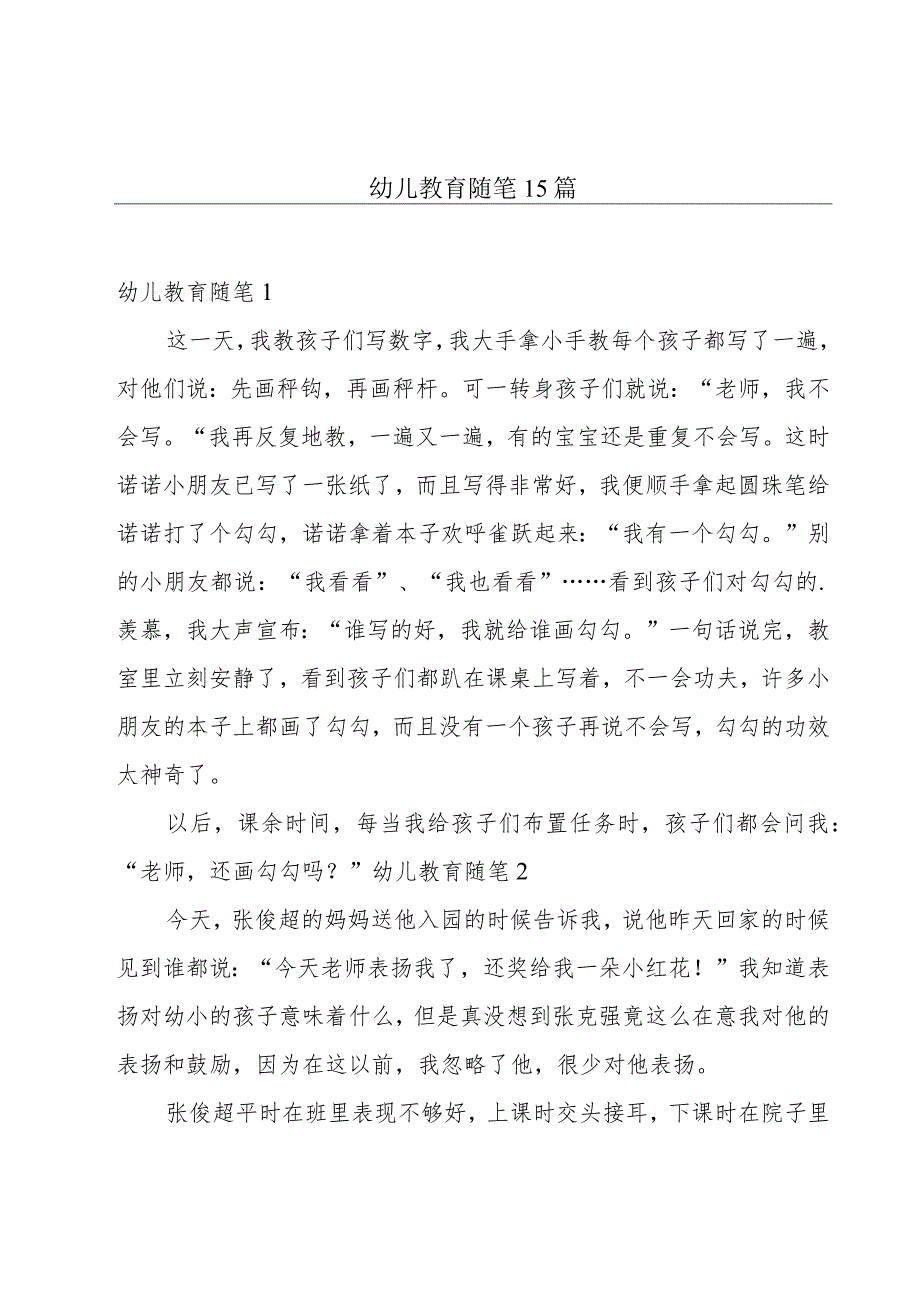 幼儿教育随笔15篇
幼儿教育随笔1
这一天，我教孩子们写数字，我大手拿小手教每个孩子都写了一遍，
对他们说：先画秤钩，再画秤杆。可一转身孩子们就说：“老师，我不
会写。“我再反复地教，一遍又一遍，有的宝宝还是重复不会写。这时
诺诺小朋友已写了一张纸了，而且写得非常好，我便顺手拿起圆珠笔给
诺诺打了个勾勾，诺诺拿着本子欢呼雀跃起来：“我有一个勾勾。”别
的小朋友都说：“我看看”、“我也看看”……看到孩子们对勾勾的.
羡慕，我大声宣布：“谁写的好，我就给谁画勾勾。”一句话说完，教
室里立刻安静了，看到孩子们都趴在课桌上写着，不一会功夫，许多小
朋友的本子上都画了勾勾，而且没有一个孩子再说不会写，勾勾的功效
太神奇了。
以后，课余时间，每当我给孩子们布置任务时，孩子们都会问我：
“老师，还画勾勾吗？”幼儿教育随笔2
今天，张俊超的妈妈送他入园的时候告诉我，说他昨天回家的时候
见到谁都说：“今天老师表扬我了，还奖给我一朵小红花！”我知道表
扬对幼小的孩子意味着什么，但是真没想到张克强竟这么在意我对他的
表扬和鼓励，因为在这以前，我忽略了他，很少对他表扬。
张俊超平时在班里表现不够好，上课时交头接耳，下课时在院子里